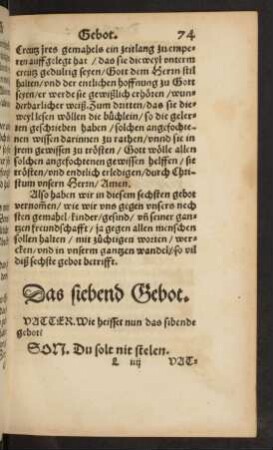 Gebot. 74
Creutz jres gemahels ein zeitlang zu empe-
ren auffgelegt hat / das sie die weyl vnterm
creutz gedultig seyen / Gott dem Herrn stil
halten / vnd der entlichen hoffnung zu Gott
seyen / er werde sie gewißlich erhören / wun-
derbarlicher weiß. Zum dritten / das sie die-
weyl lesen wöllen die büchlein / so die geler-
ten geschrieben haben / solchen angefochte-
nen wissen darinnen zu rathen / vnnd sie in
jrem gewissen zu trösten / Gott wölle allen
solchen angefochtenen gewissen helffen / sie
trösten / vnd endlich erledigen / durch Chri-
stum vnsern Herrn / Amen.
Also haben wir in diesem sechsten gebot
vernomen / wie wir vns gegen vnsern nech-
sten gemahel / kinder / gesind / vñ seiner gan-
tzen freundschafft / ja gegen allen menschen
sollen halten / mit züchtigen worten / wer-
cken / vnd in vnserm gantzen wandel / so vil
diß sechste gebot betrifft.
Das siebend Gebot.
VATTER. Wie heisset nun das sibende
gebot?
SON. Du solt nit stelen.
L iiij VAT-